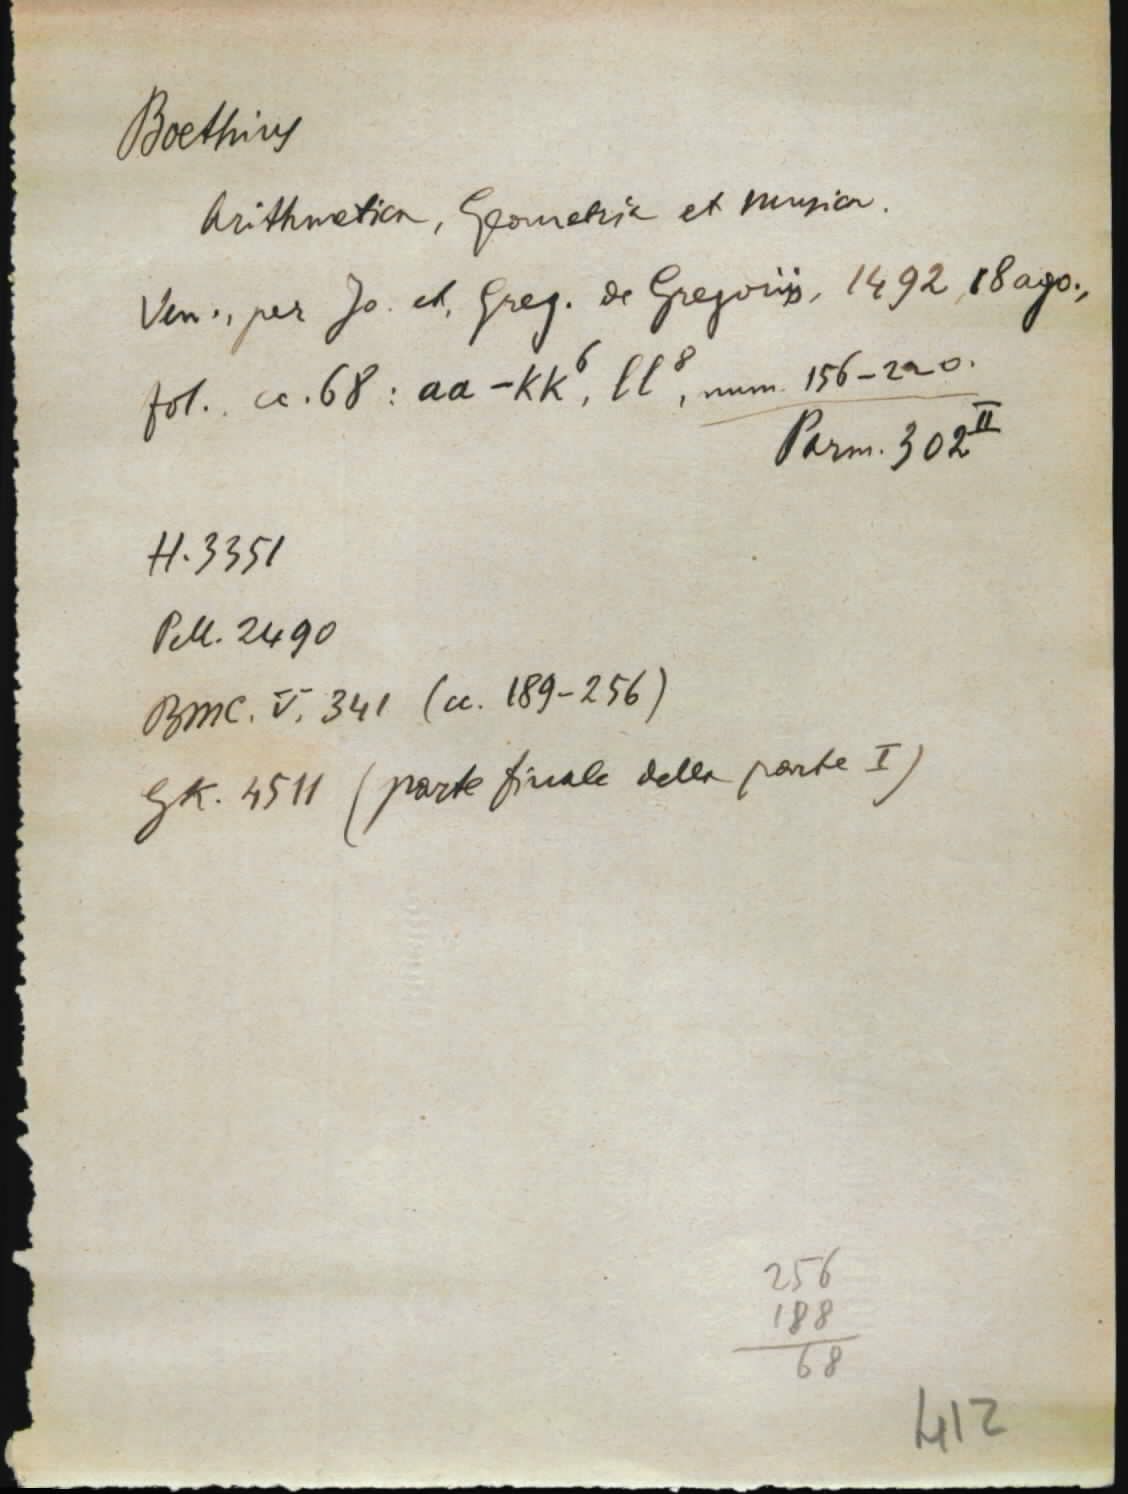 Boethius
Arithmetica, Geometria et Musica.
Ven., per Jo. et Greg. de Gregoriis, 1492, 18 ago.,
fol. cc. 68 : aa-KK⁶, ll⁸, num. 156-220.
Parm. 302 II
H. 3351
Pell. 2490
BMC. V, 341 (cc. 189-256)
GK. 4511 (parte finale della parte I)
256
188
68
412